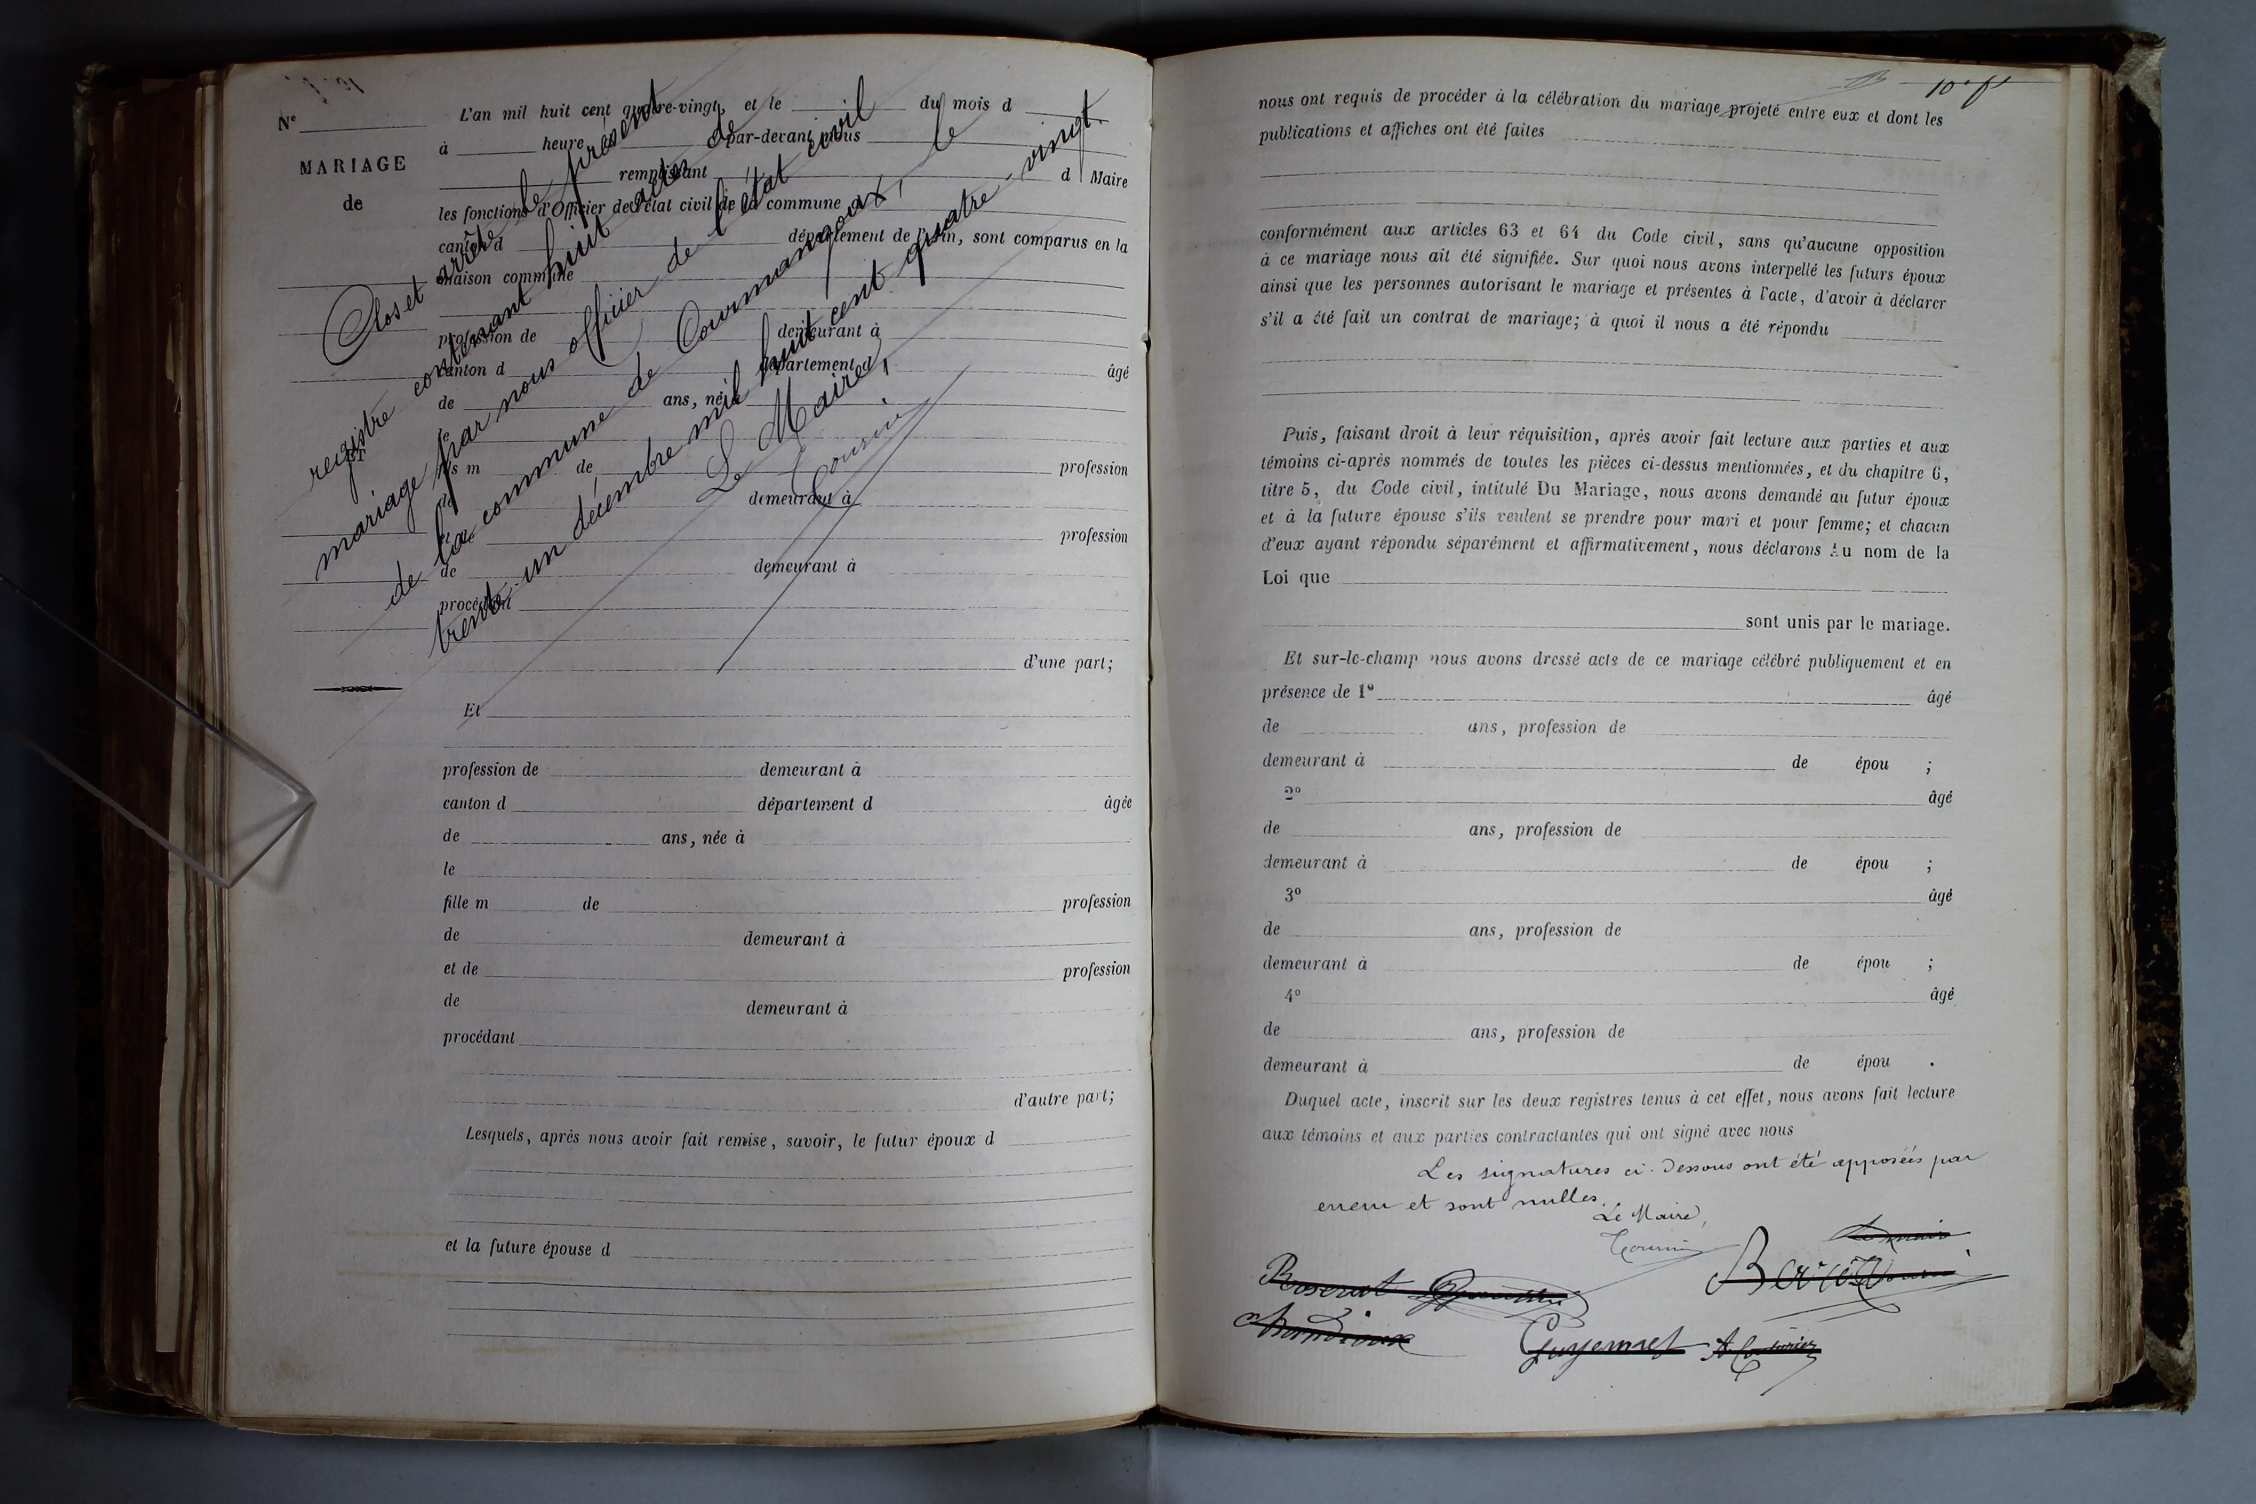 Nº
MARIAGE
de
et
L'an mil huit cent quatre-vingt et le du mois d
à heure par-devant nous
remplissant d Maire
les fonctions d'Officier de l'état civil de la commune
canton d département de l'Ain, sont comparus en la
maison commune
profession de demeurant à
canton d département d âgé
de ans, né à
le
fils m de profession
de demeurant à
et de profession
de demeurant à
procédant
d'une part;
Clos et arrêté le présent
registre contenant huit actes de
mariage par nous officier de l'état civil
de la commune de Courmangoux, le
trente-un décembre mil huit cent quatre-vingt.
Le Maire,
Et
profession de demeurant à
canton d département d âgée
de ans, née à
le
fille m de profession
de demeurant à
et de profession
de demeurant à
procédant
d'autre part;
Lesquels, après nous avoir fait remise, savoir, le futur époux d
et la future épouse d
10e ft
nous ont requis de procéder à la célébration du mariage projeté entre eux et dont les
publications et affiches ont été faites
conformément aux articles 63 et 64 du Code civil, sans qu'aucune opposition
à ce mariage nous ait été signifiée. Sur quoi nous avons interpellé les futurs époux
ainsi que les personnes autorisant le mariage et présentes à l'acte, d'avoir à déclarer
s'il a été fait un contrat de mariage; à quoi il nous a été répondu
Puis, faisant droit à leur réquisition, après avoir fait lecture aux parties et aux
témoins ci-après nommés de toutes les pièces ci-dessus mentionnées, et du chapitre 6,
titre 5, du Code civil, intitulé Du Mariage, nous avons demandé au futur époux
et à la future épouse s'ils veulent se prendre pour mari et pour femme; et chacun
d'eux ayant répondu séparément et affirmativement, nous déclarons Au nom de la
Loi que
sont unis par le mariage.
Et sur-le-champ nous avons dressé acte de ce mariage célébré publiquement et en
présence de 1º âgé
de ans, profession de
demeurant à de épou ;
2º âgé
de ans, profession de
demeurant à de épou ;
3º âgé
de ans, profession de
demeurant à de épou ;
4º âgé
de ans, profession de
demeurant à de épou .
Duquel acte, inscrit sur les deux registres tenus à cet effet, nous avons fait lecture
aux témoins et aux parties contractantes qui ont signé avec nous
Les signatures ci-dessous ont été apposées par
erreur et sont nulles.
Le Maire,
Guyennet